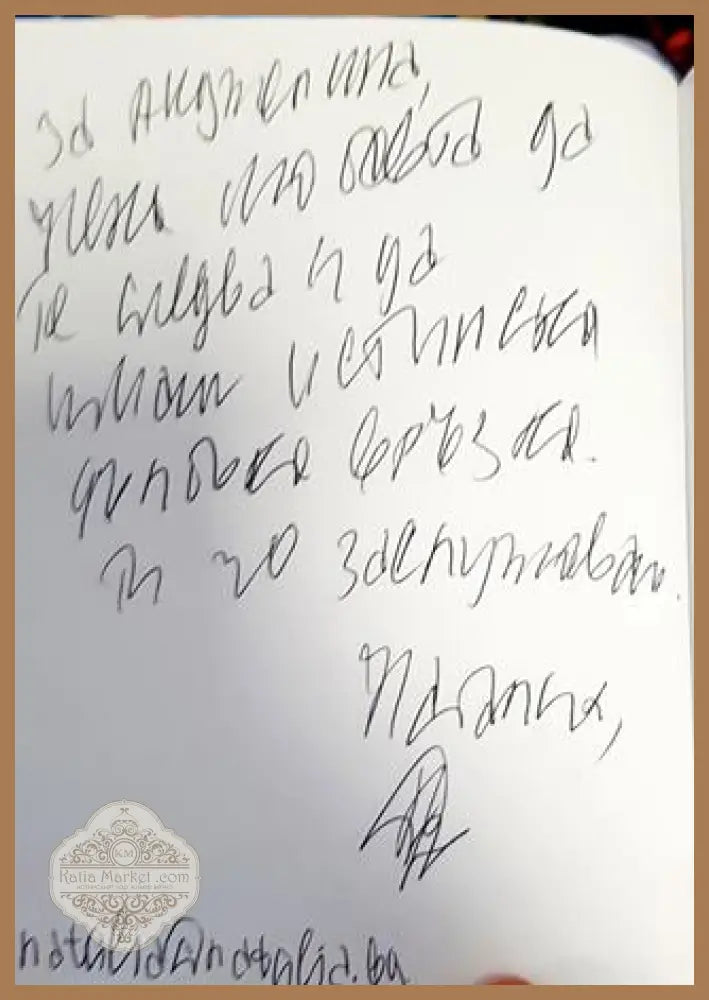 За Анджелина,
любовта да
те следва и да
имаш истинска
връзка.
Ти го заслужаваш.
Наталия,
KM
Katia Market .com
natalia@natalia.bg